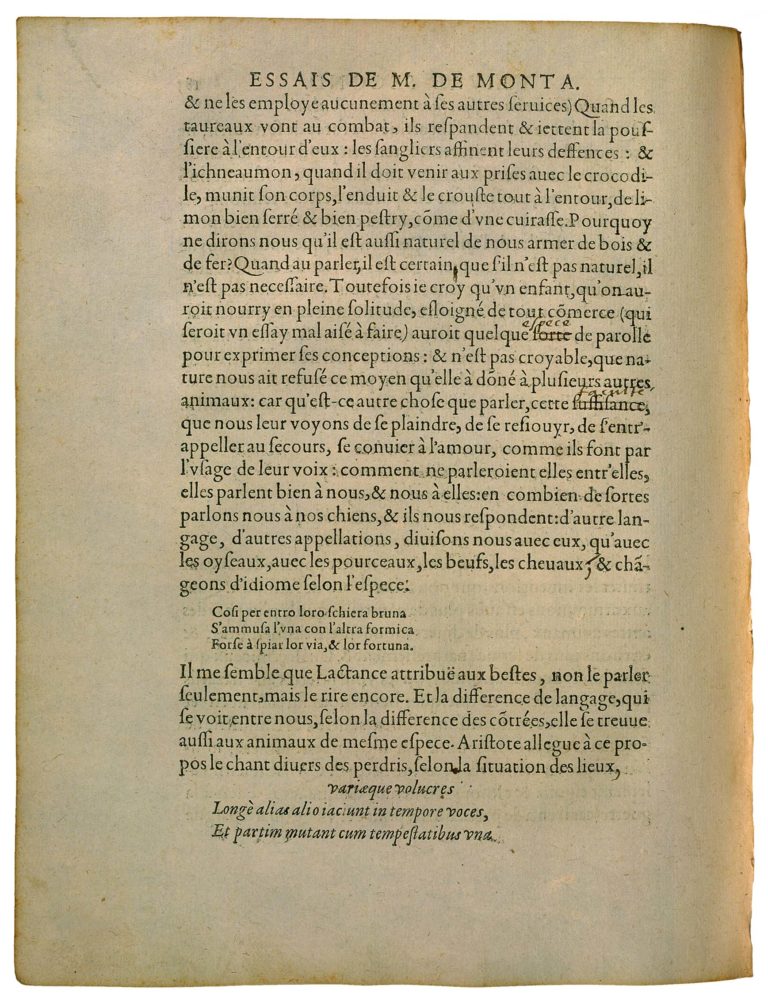 ESSAIS DE M. DE MONTA.
& ne les employe aucunement à ſes autres ſeruices) Quand les
taureaux vont au combat, ils reſpandent & iettent la pouſ-
ſiere à l'entour d'eux : les ſangliers affinent leurs deffences : &
l'ichneaumon, quand il doit venir aux priſes auec le crocodi-
le, munit ſon corps, l'enduit & le crouſte tout à l'entour, de li-
mon bien ſerré & bien peſtry, cõme d'vne cuiraſſe. Pourquoy
ne dirons nous qu'il eſt auſſi naturel de nous armer de bois &
de fer? Quand au parler, il eſt certain, que s'il n'eſt pas naturel, il
n'eſt pas neceſſaire. Toutefois ie croy qu'vn enfant, qu'on au-
roit nourry en pleine ſolitude, eſloigné de tout cõmerce (qui
espece
ſeroit vn eſſay mal aiſé à faire) auroit quelque ſorte de parolle
pour exprimer ſes conceptions : & n'eſt pas croyable, que na-
ture nous ait refuſé ce moyen qu'elle à dõné à pluſieurs autres
faculté
animaux: car qu'eſt-ce autre choſe que parler, cette ſuffiſance,
que nous leur voyons de ſe plaindre, de ſe reſiouyr, de s'entr'-
appeller au ſecours, ſe conuier à l'amour, comme ils font par
l'vſage de leur voix : comment ne parleroient elles entr'elles,
elles parlent bien à nous, & nous à elles: en combien de ſortes
parlons nous à nos chiens, & ils nous reſpondent: d'autre lan-
gage, d'autres appellations, diuiſons nous auec eux, qu'auec
les oyſeaux, auec les pourceaux, les beufs, les cheuaux, & chã-
geons d'idiome ſelon l'eſpece:
Coſi per entro loro ſchiera bruna
S'ammuſa l'vna con l'altra formica
Forſe à ſpiar lor via, & lor fortuna.
Il me ſemble que Lactance attribuë aux beſtes, non le parler
ſeulement, mais le rire encore. Et la difference de langage, qui
ſe voit entre nous, ſelon la difference des cõtrées, elle ſe treuue
auſſi aux animaux de meſme eſpece. Ariſtote allegue à ce pro-
pos le chant diuers des perdris, ſelon la ſituation des lieux,
variæque volucres
Longè alias alio iaciunt in tempore voces,
Et partim mutant cum tempeſtatibus vna